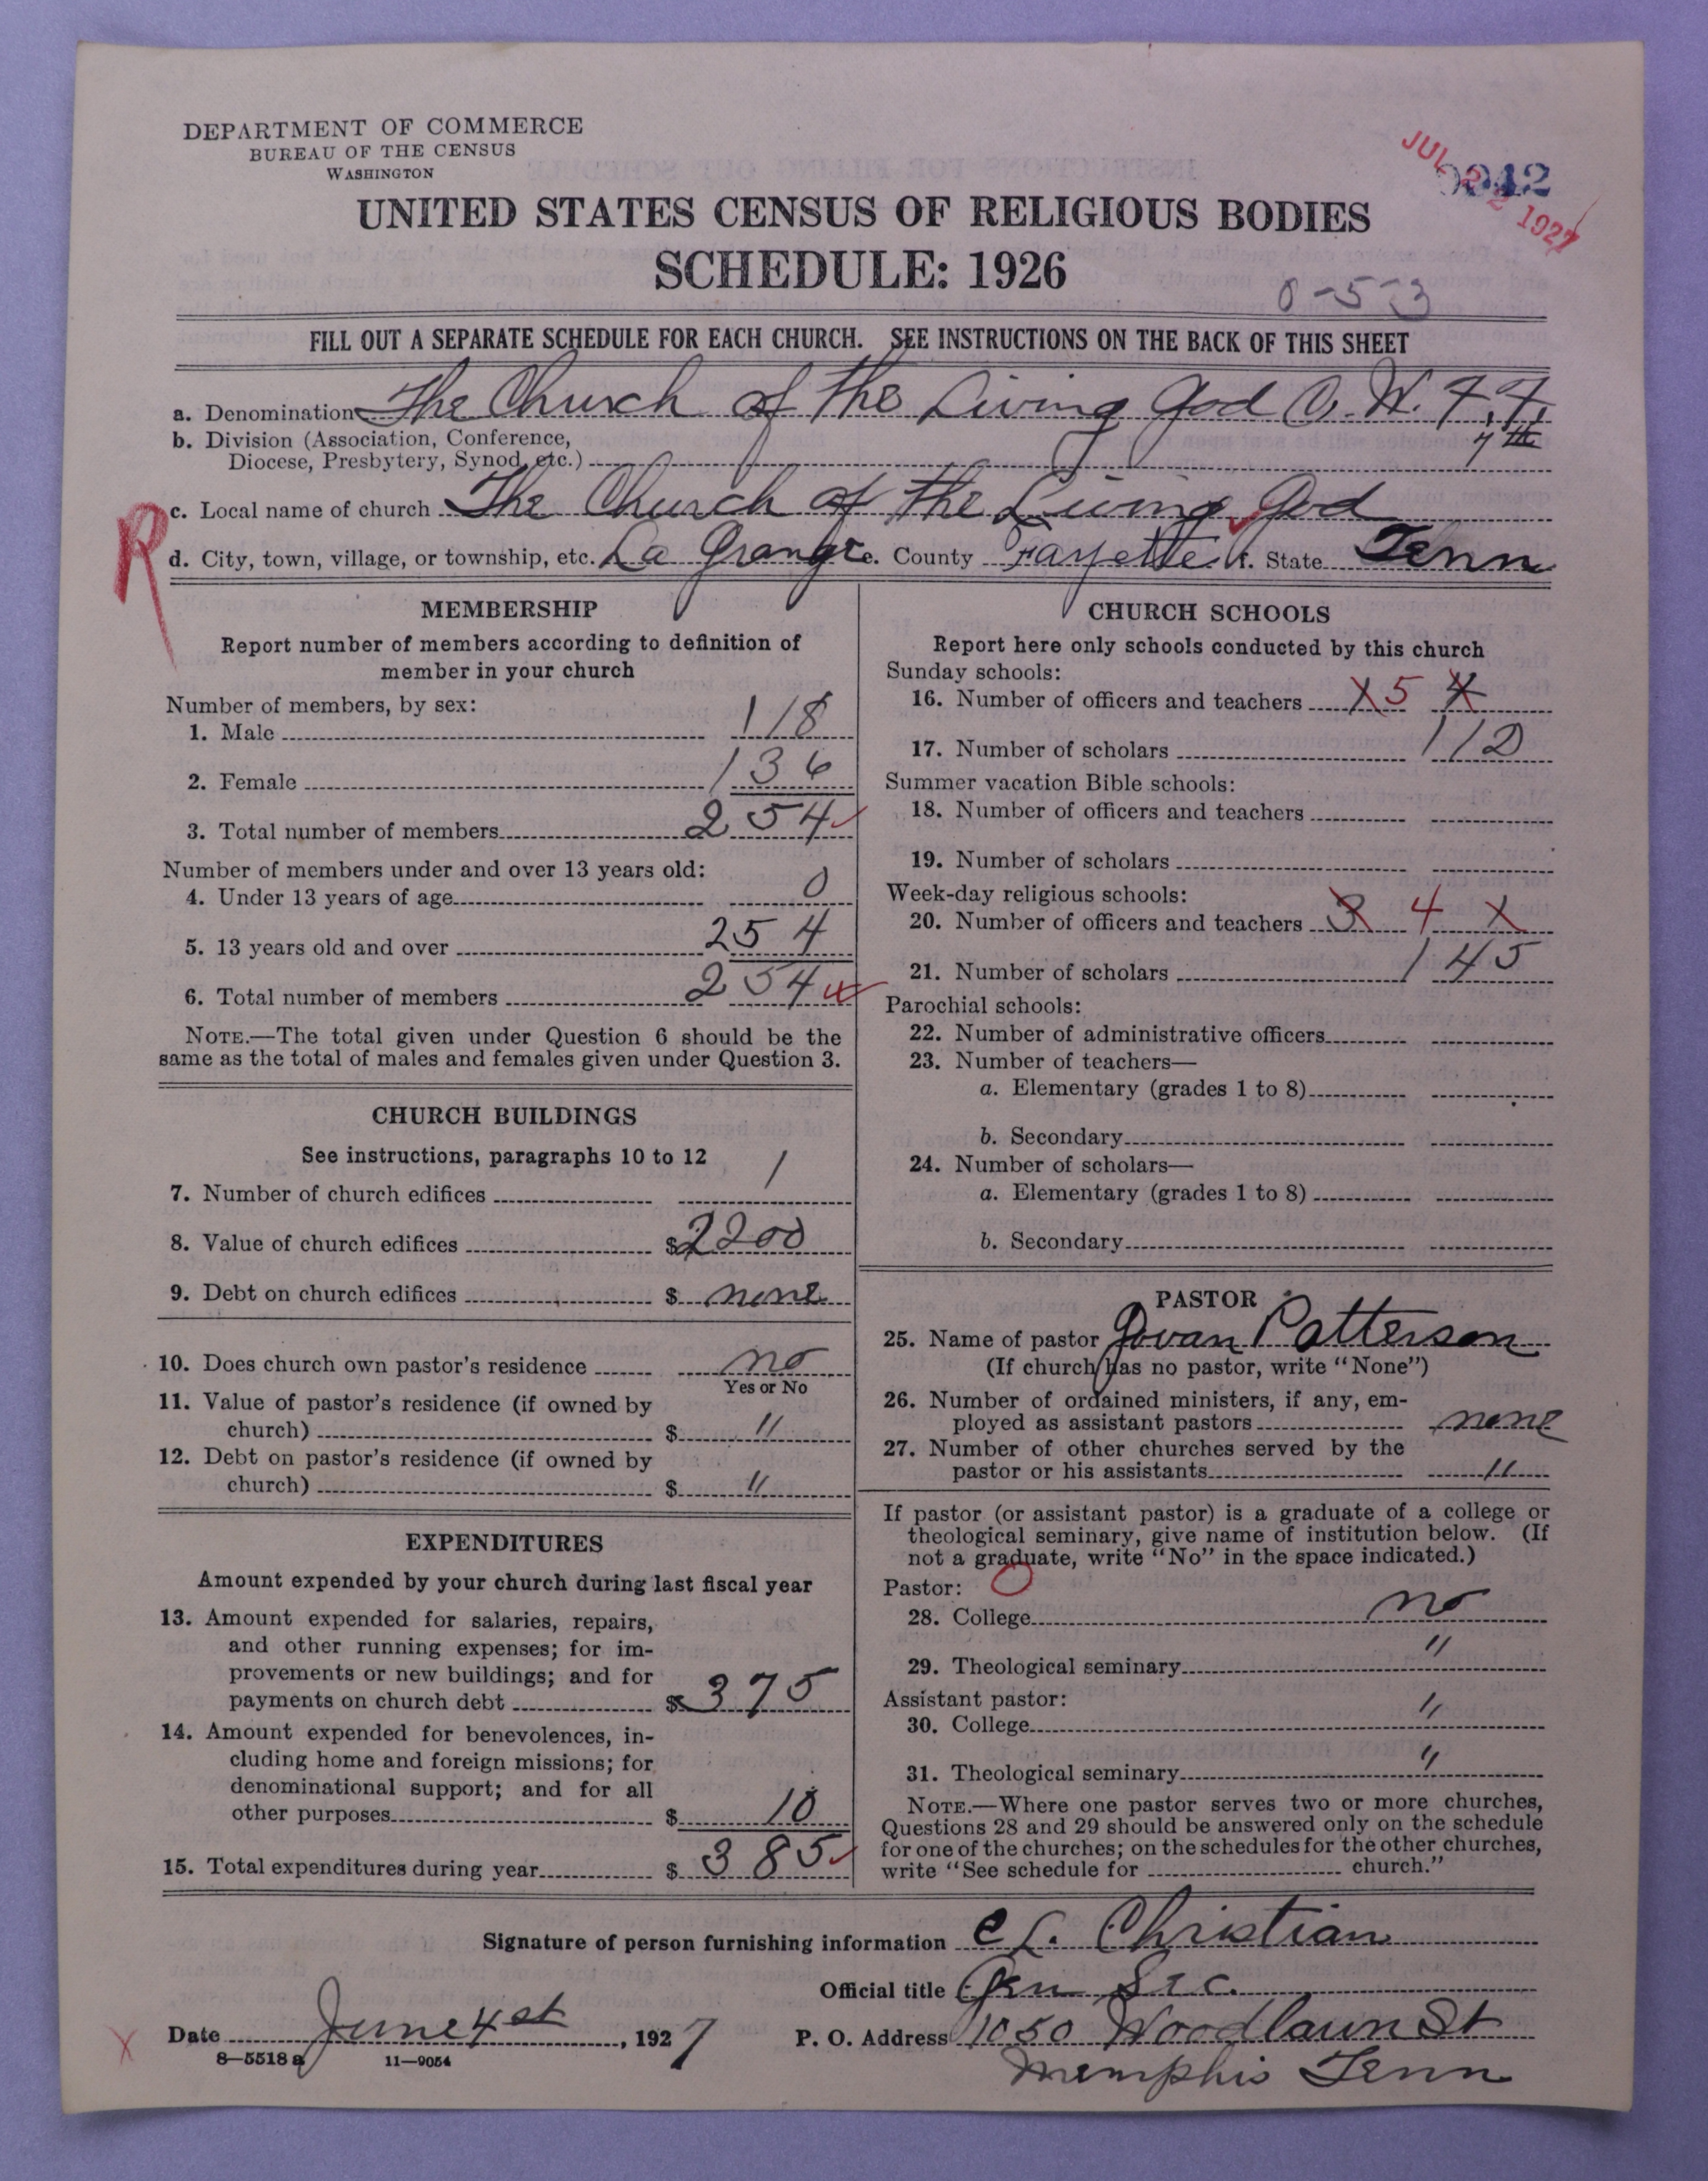 DEPARTMENT OF COMMERCE
BUREAU OF THE CENSUS
WASHINGTON
JUL 22 1927
UNITED STATES CENSUS OF RELIGIOUS BODIES
SCHEDULE: 1926
0-53
FILL OUT A SEPARATE SCHEDULE FOR EACH CHURCH. SEE INSTRUCTIONS ON THE BACK OF THIS SHEET
a. Denomination The Church of the Living God C. W. F. F.
b. Division (Association, Conference,
Diocese, Presbytery, Synod, etc.) 7th
c. Local name of church The Church of the Living God
R
d. City, town, village, or township, etc. La Grange e. County Fayette f. State Tenn
MEMBERSHIP
Report number of members according to definition of
member in your church
Number of members, by sex:
1. Male 118
2. Female 136
3. Total number of members 254
Number of members under and over 13 years old:
4. Under 13 years of age 0
5. 13 years old and over 254
6. Total number of members 254
NOTE.—The total given under Question 6 should be the
same as the total of males and females given under Question 3.
CHURCH BUILDINGS
See instructions, paragraphs 10 to 12
7. Number of church edifices 1
8. Value of church edifices $2200
9. Debt on church edifices $ none
10. Does church own pastor's residence no
Yes or No
11. Value of pastor's residence (if owned by
church) $ "
12. Debt on pastor's residence (if owned by
church) $ "
EXPENDITURES
Amount expended by your church during last fiscal year
13. Amount expended for salaries, repairs,
and other running expenses; for im-
provements or new buildings; and for
payments on church debt $ 375
14. Amount expended for benevolences, in-
cluding home and foreign missions; for
denominational support; and for all
other purposes $ 10
15. Total expenditures during year $ 385
CHURCH SCHOOLS
Report here only schools conducted by this church
Sunday schools:
16. Number of officers and teachers 5 4
17. Number of scholars 112
Summer vacation Bible schools:
18. Number of officers and teachers
19. Number of scholars
Week-day religious schools:
20. Number of officers and teachers 3 4
21. Number of scholars 145
Parochial schools:
22. Number of administrative officers
23. Number of teachers—
a. Elementary (grades 1 to 8)
b. Secondary
24. Number of scholars—
a. Elementary (grades 1 to 8)
b. Secondary
PASTOR
25. Name of pastor Patterson
(If church has no pastor, write "None")
26. Number of ordained ministers, if any, em-
ployed as assistant pastors none
27. Number of other churches served by the
pastor or his assistants "
If pastor (or assistant pastor) is a graduate of a college or
theological seminary, give name of institution below. (If
not a graduate, write "No" in the space indicated.)
Pastor: O
28. College no
29. Theological seminary "
Assistant pastor:
30. College "
31. Theological seminary "
NOTE.—Where one pastor serves two or more churches,
Questions 28 and 29 should be answered only on the schedule
for one of the churches; on the schedules for the other churches,
write "See schedule for church."
Signature of person furnishing information C L. Christian
Official title Gen Sec.
X Date June 4st, 1927 P. O. Address 1050 Woodlawn St
8—5518 a 11—9054
Memphis Tenn